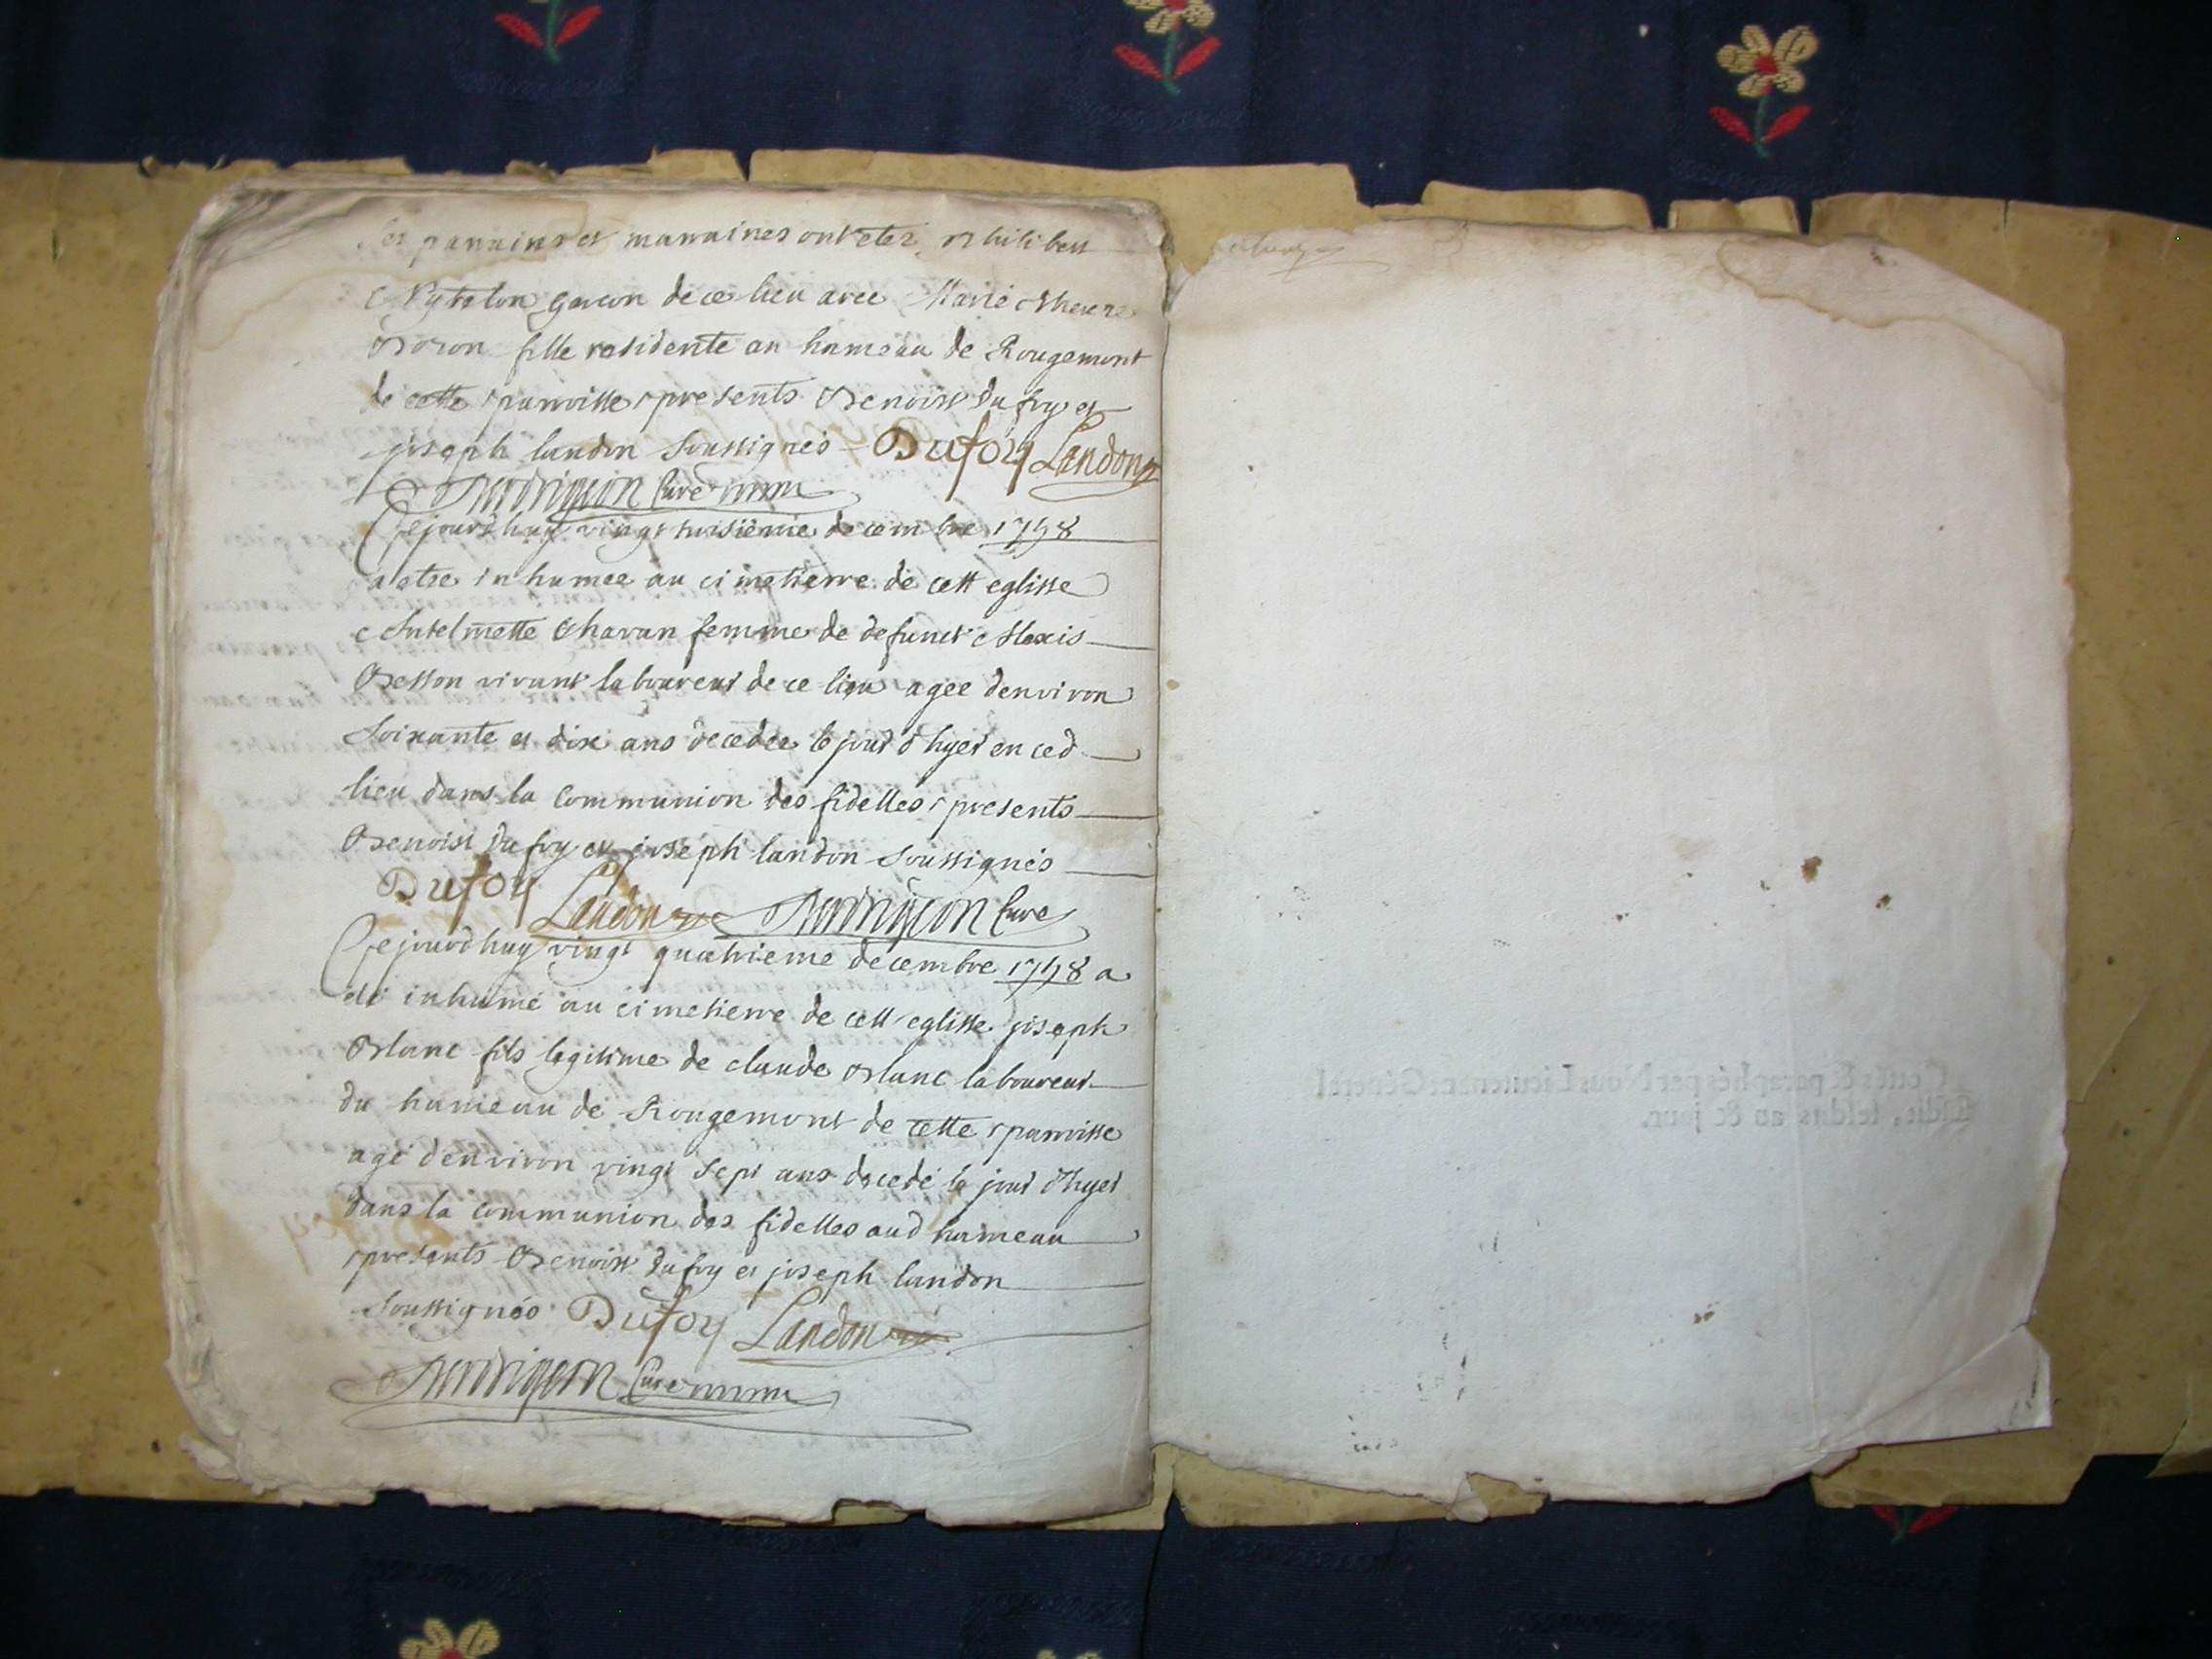 Ses parrains et marraines ont etez philibert
garcon de ce lieu avec Marie
fille residente au hameau de Rougemont
de cette parroisse presents Benoist Dufoy et
joseph landon soussignés Dufoÿ Landon
Curé
Cejourd'huy vingt troisieme decembre 1748
a etee inhumee au cimetierre de cett eglisse
Antelmette Chavan femme de defunct Alexis
Besson vivant laboureur de ce lieu agee denviron
Soixante et dix ans decedee le jour d'hyer en ced
lieu dans la Communion des fidelles presents
Benoist Dufoy et joseph landon Soussignés
Dufoy Landon Curé
Cejourd'huy vingt quatrieme decembre 1748 a
eté inhumé au cimetierre de cett eglisse joseph
Blanc fils legitime de claude Blanc laboureur
du hameau de Rougemont de cette parroisse
agé denviron vingt sept ans decedé le jour d'hyer
dans la Communion des fidelles aud hameau
presents Benoist Dufoy et joseph landon
Soussignés Dufoy Landon
Curé
Cottés & paraphés par Nous Lieutenant Général
susdit, lesdits an & jour.